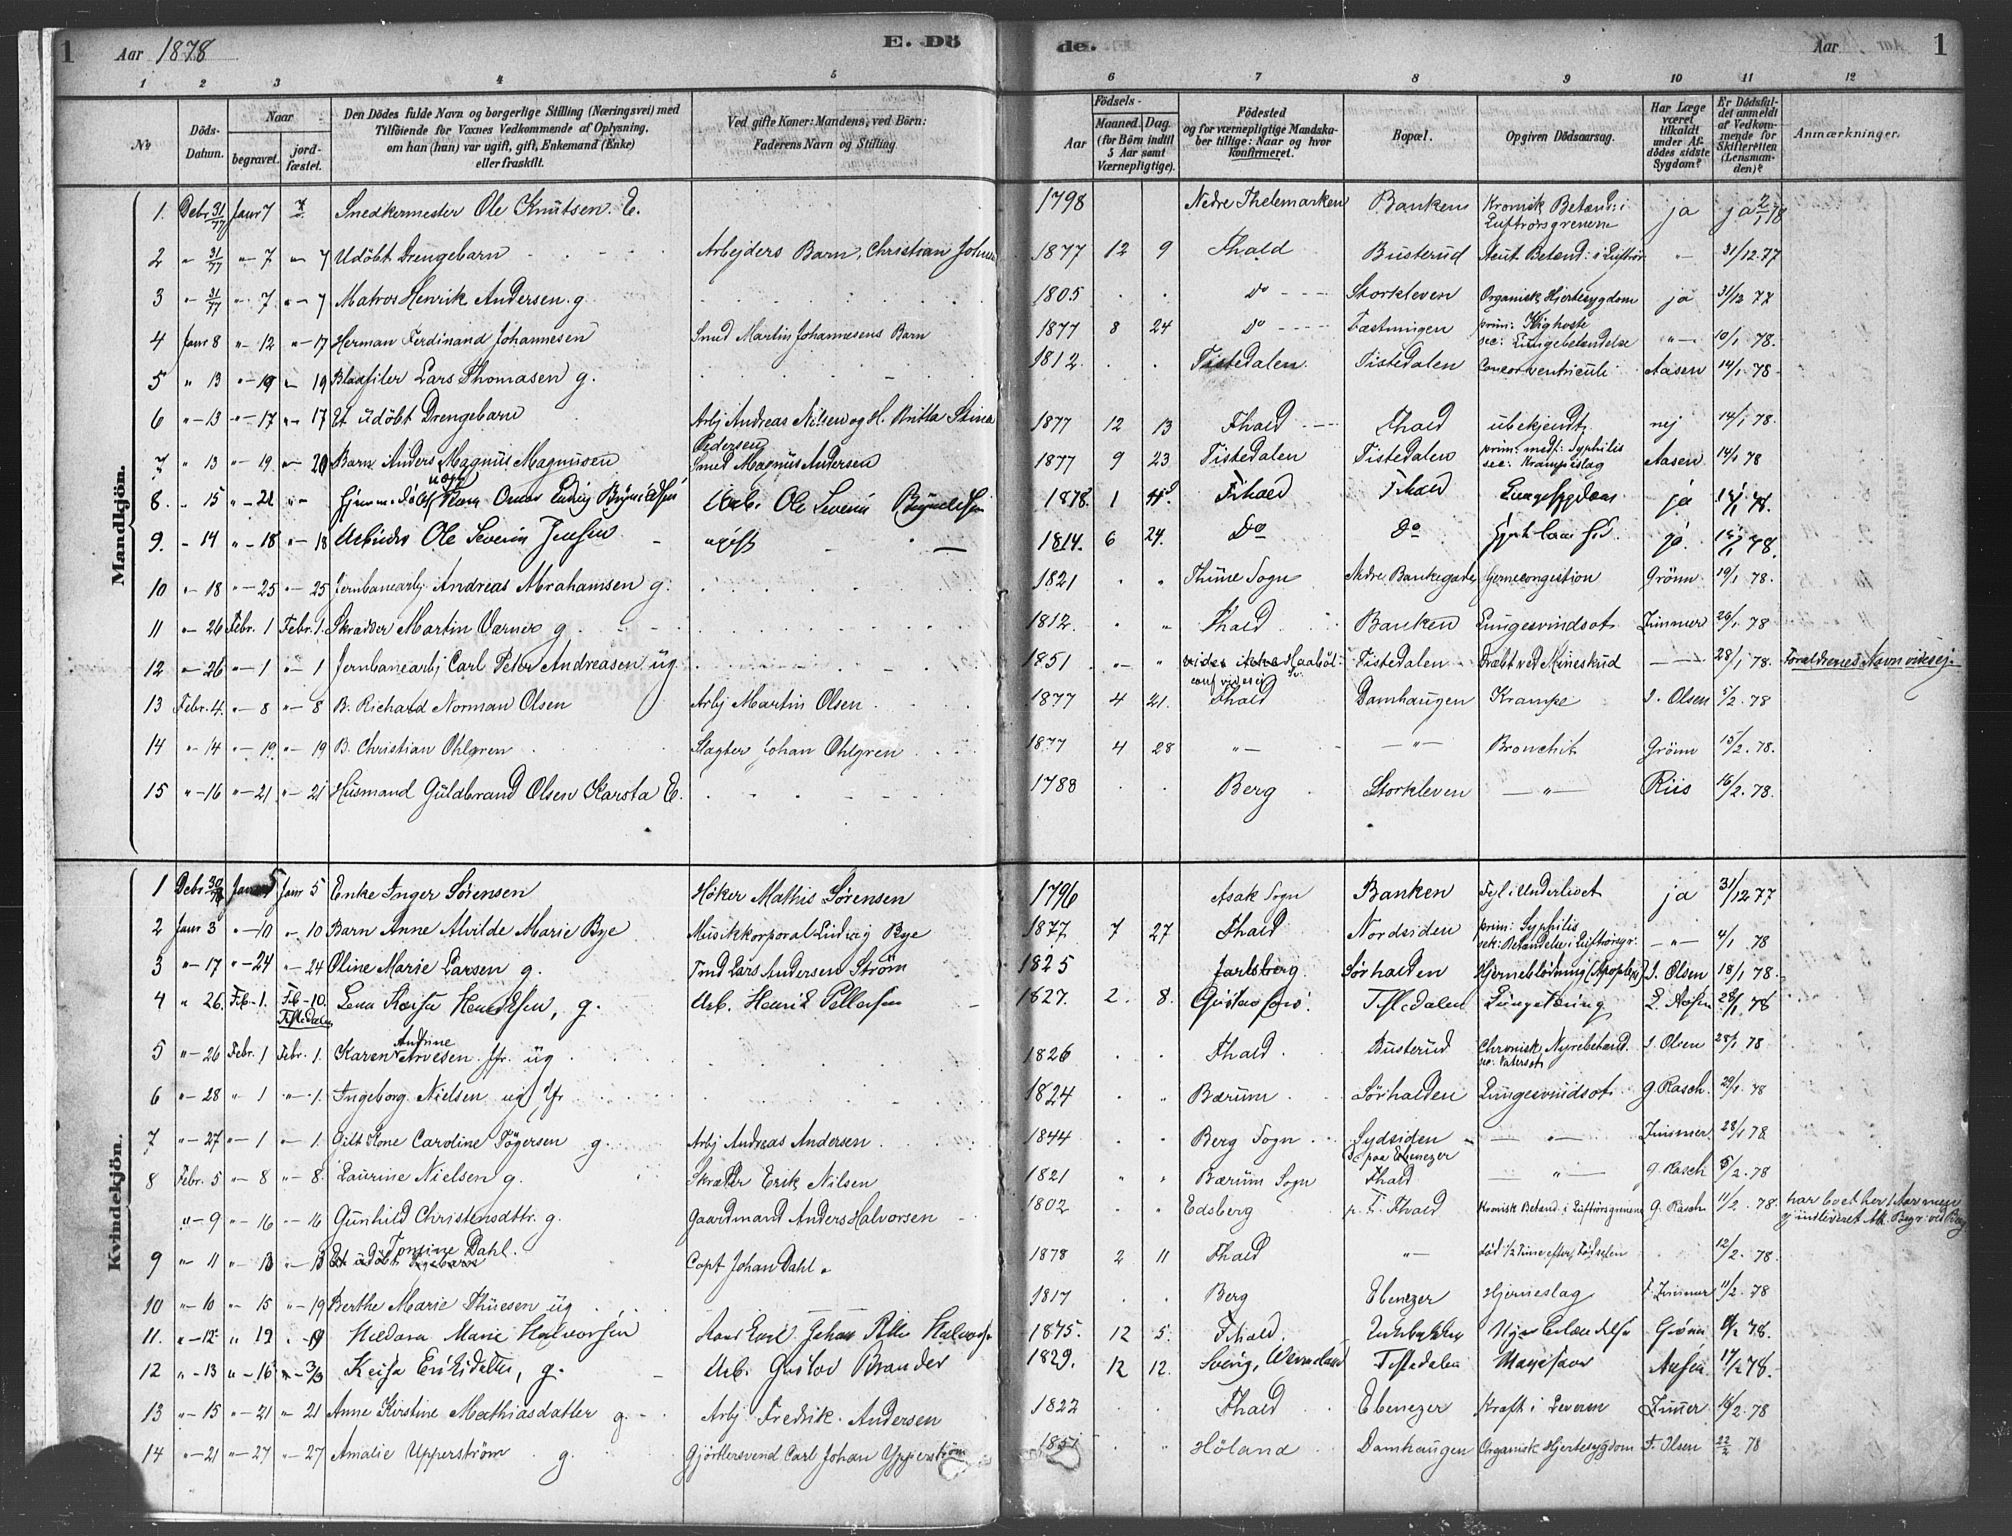 1 Aar 1878 E. Dö
de. Aar 1
1 2 3 4 5 6 7 8 9 10 11 12
No
Döds-Datum.
Naar
begravet.
jord-fæstet.
Den Dödes fulde Navn og borgerlige Stilling (Næringsvei) med
Tilföiende for Voxnes Vedkommende af Oplysning,
om han (hun) var ugift, gift, Enkemand (Enke)
eller fraskilt.
Ved gifte Koner: Mandens, ved Börn:
Faderens Navn og Stilling.
Aar
Födsels-
Maaned. Dag.
(for Börn indtil
5 Aar samt
Værnepligtige).
Födested
og for værnepligtige Mandska-
ber tillige: Naar og hvor
Konfirmeret.
Bopæl.
Opgiven Dödsaarsag.
Har Læge
været
tilkaldt
under Af-
dödes sidste
Sygdom?
Er Dödsfal-
det anmeldt
af Vedkom-
mende for
Skifteretten
(Lensman-
den)?
Anmærkninger.
Mandkjön.
1. Debr 31/77 Janr 7 7 Snedkermester Ole Knutsen. E. 1798 Nedre Thelemarken Banken Kronisk Betænd: i Luftrörsgrenene ja ja 2/1 78
2 " 31/77 " 7 " 7 Udöbt Drengebarn Arbejders Barn, Christian Johns 1877 12 9 Fhald Busterud Acut Betænd: i Luftrör " 31/12 77
3 " 31/77 " 7 " 7 Matros Henrik Andersen g. 1805 Do Storkleven Organisk Hjertesygdom ja 31/12 77
4 Janr 8 " 12 " 17 Herman Ferdinand Johannesen Smed Martin Johannesens Barn 1877 8 24 Do Fæstningen prim: Kighoste sec: Lungebetændelse " 10/1 78.
5 " 13 " 19 " 19 Lars Thomasen g. 1812. Tistedalen Tistedalen Cancer ventriculi Aasen 14/1 78.
6 " 13 " 17 " 17 Et udöbt Drengebarn Arbj Andreas Nilsen og H. Britta Stina Pedersen 1877 12 13 Fhald Fhald ubekjendt nej 14/1 78.
7 " 13 " 19. " 20 Barn Anders Magnus Magnusen Smed Magnus Andersen 1877 9 23 Tistedalen Tistedalen prim: medf: Syphilis sec: Krampeslag Aasen 14/1 78
8. " 15 " 21 " Barn Omar Ludvig Arb. Ole Severin 1878. 1 4 Fhald Fhald Lungesygdom ja 78.
9. " 14 " 18 " 18 Arbeider Ole Severin Jensen ugift 1814. 6 24. Do Do ja. 78.
10 " 18 " 25 " 25 Jernbanearbj Andreas Abrahamsen g. 1821 Thune Sogn Nedre Bankegade Hjernecongestion Grönn 19/1 78.
11 " 26 Febr. 1 Febr. 1. Skrædder Martin Varner g. 1812. Fhald Banken Lungesvindsot Zimmer 26/1 78
12 " 26 " 1 " 1 Jernbanearbj Carl Peter Andreasen ug 1851 Tistedalen Dræbt ved Mineskud 28/1 78. Forældrenes Navn vides ej
13 Febr. 4. " 8 " 8 B. Richard Norman Olsen Arbj Martin Olsen 1877 4 21. Fhald Damhaugen Krampe S. Olsen 5/2. 78
14 " 14 " 19. " 19 B. Christian Ohlgren Slagter Johan Ohlgren 1877 4 28 " " Bronchit Grönn 15/2. 78.
15 " 16 " 21 " 21 Husmand Guldbrand Olsen Karsta E. 1788 Berg Storkleven " Riis 16/2. 78.
Kvindekjön.
1 Debr 30 Janr 5 Janr 5 Enke Inger Sørensen Høker Mathis Sørensen 1796 Asak Sogn Banken ja 31/12 77
2 Janr 3 " 10 " 10 Barn Anne Alvilde Marie Bye Musikkorporal Ludvig Bye 1877 7 27 Fhald Nordsiden prim: Syphilis sek: Betændelse i Luftrörsgr. " 4/1 78
3 " 17 " 24 " 24 Oline Marie Larsen g. Tmd Lars Andersen Strøm 1825 Jarlsberg. Sørhalden Hjerneblödning (Apoplexi) S. Olsen 18/1 78.
4 " 26. Feb 1. Feb 10. Tistedalen Lena g. Arb. Henrik Pettersen 1827. 2. 8. Tistedalen Lungetæring 28/1 78
5 " 26 Febr. 1 Febr. 1. Karen Andrine Arvesen ug 1826 Fhald Busterud Chronisk Nyrebetænd. sec: Vatersot S. Olsen 28/1 78
6 " 28 " 1 " 1. Ingeborg Nielsen ug 1824 Bærum Sørhalden Lungesvindsot G. Rasch. 29/1 78
7 " 27 " 1 " 1. Gift Kone Caroline g. Arbj Andreas Andersen 1844 Berg Sogn Sydsiden paa Ebenezer " Zimmer. 28/1 78
8 Febr. 5 " 8 " 8. Laurine Nielsen g. Skræder Erik Nilsen 1821 Bærum Sogn Fhald " G. Rasch 5/2. 78
" 9 " 16 " 16 Gunhild Christensdttr. g. Gaardmand Anders Halvorsen 1802 Edsberg Fhald Kronisk Betænd. i Luftrörsgrenene G. Rasch 11/2. 78 har boet her 1 Aar men
9 " 11 " 13 " 13 Tomine Dahl. Et udöbt Capt Johan Dahl. 1878 2 11 Fhald " död 1/2 Time efter Födselen 12/2. 78.
10 " 10 " 15 " 19 Berthe Marie Thuesen ug 1817 Berg Ebenezer Hjerneslag F. Zimmer 11/2. 78
11. " 12 " 19 " 19 Marie Halvorsen Johan 1875. 12 5. Fhald. Grönn 78.
12 " 13 " 16 g. Arb. Gustav Brander 1829. 12 12. Sverig, Wermeland Tistedalen Aasen 17/2 78.
13 " 15 " 21 " 21 Anne Kirstine Mathiasdatter g. Arbj Fredrik Andersen 1822 Fhald Ebenezer Kræft i Leveren Zimmer 16/2. 78
14 " 21 " 27 " 27 Amalie Upperström g. Gjörtlersvend Carl Johan Ypperström 1851 Höland Damhaugen Organisk Hjertesygdom F. Olsen 22/2 78